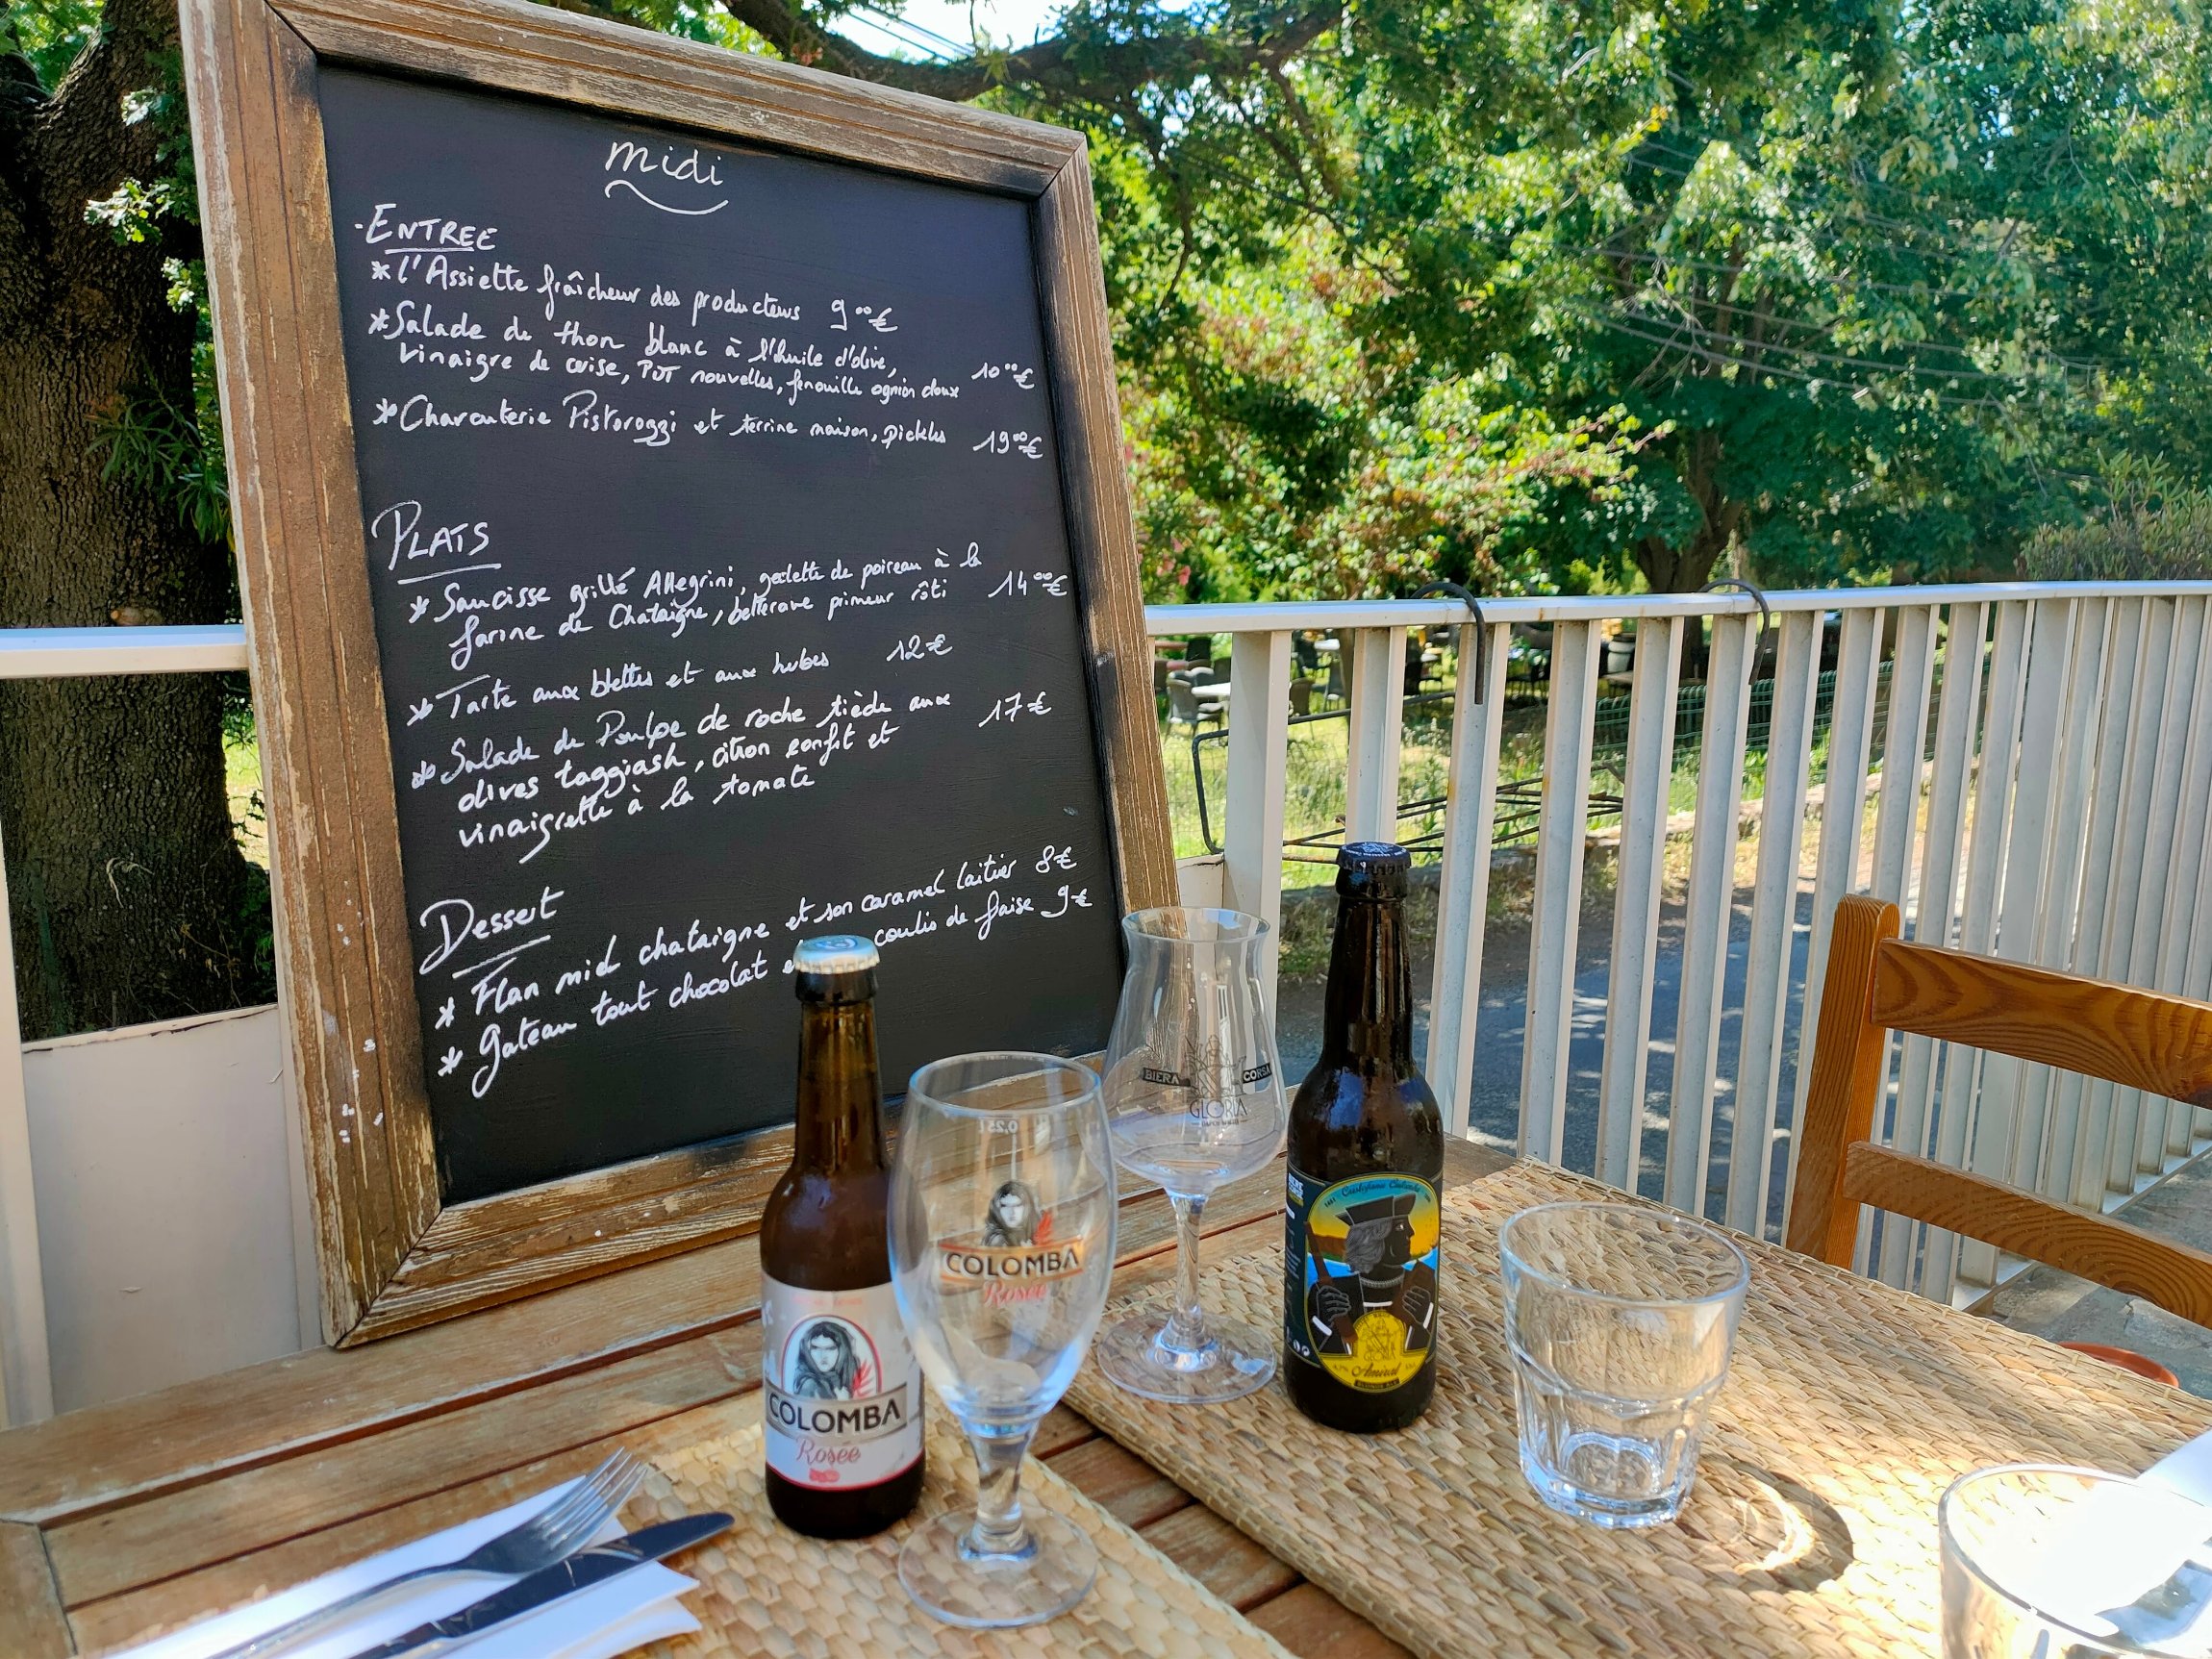 midi
- ENTREE
* l'Assiette fraîcheur des producteurs 9°°€
* Salade de thon blanc à l'huile d'olive,
vinaigre de cerise, PDT nouvelles, fenouille ognion doux 10°°€
* Charcuterie Pistoroggi et terrine maison, pickles 19°°€
PLATS
* Saucisse grillé Allegrini, galette de poireau à la
farine de Chataigne, betterave primeur rôti 14°°€
* Tarte aux blettes et aux herbes 12€
* Salade de Poulpe de roche tiède aux
olives taggiash, citron confit et 17€
vinaigrette à la tomate
Dessert
* Flan miel chataigne et son caramel laitier 8€
* Gateau tout chocolat coulis de fraise 9€
0,25l
COLOMBA
Rosée
BIERA CORSA
GLORIA
COLOMBA
Rosée
GLORIA
Amiral